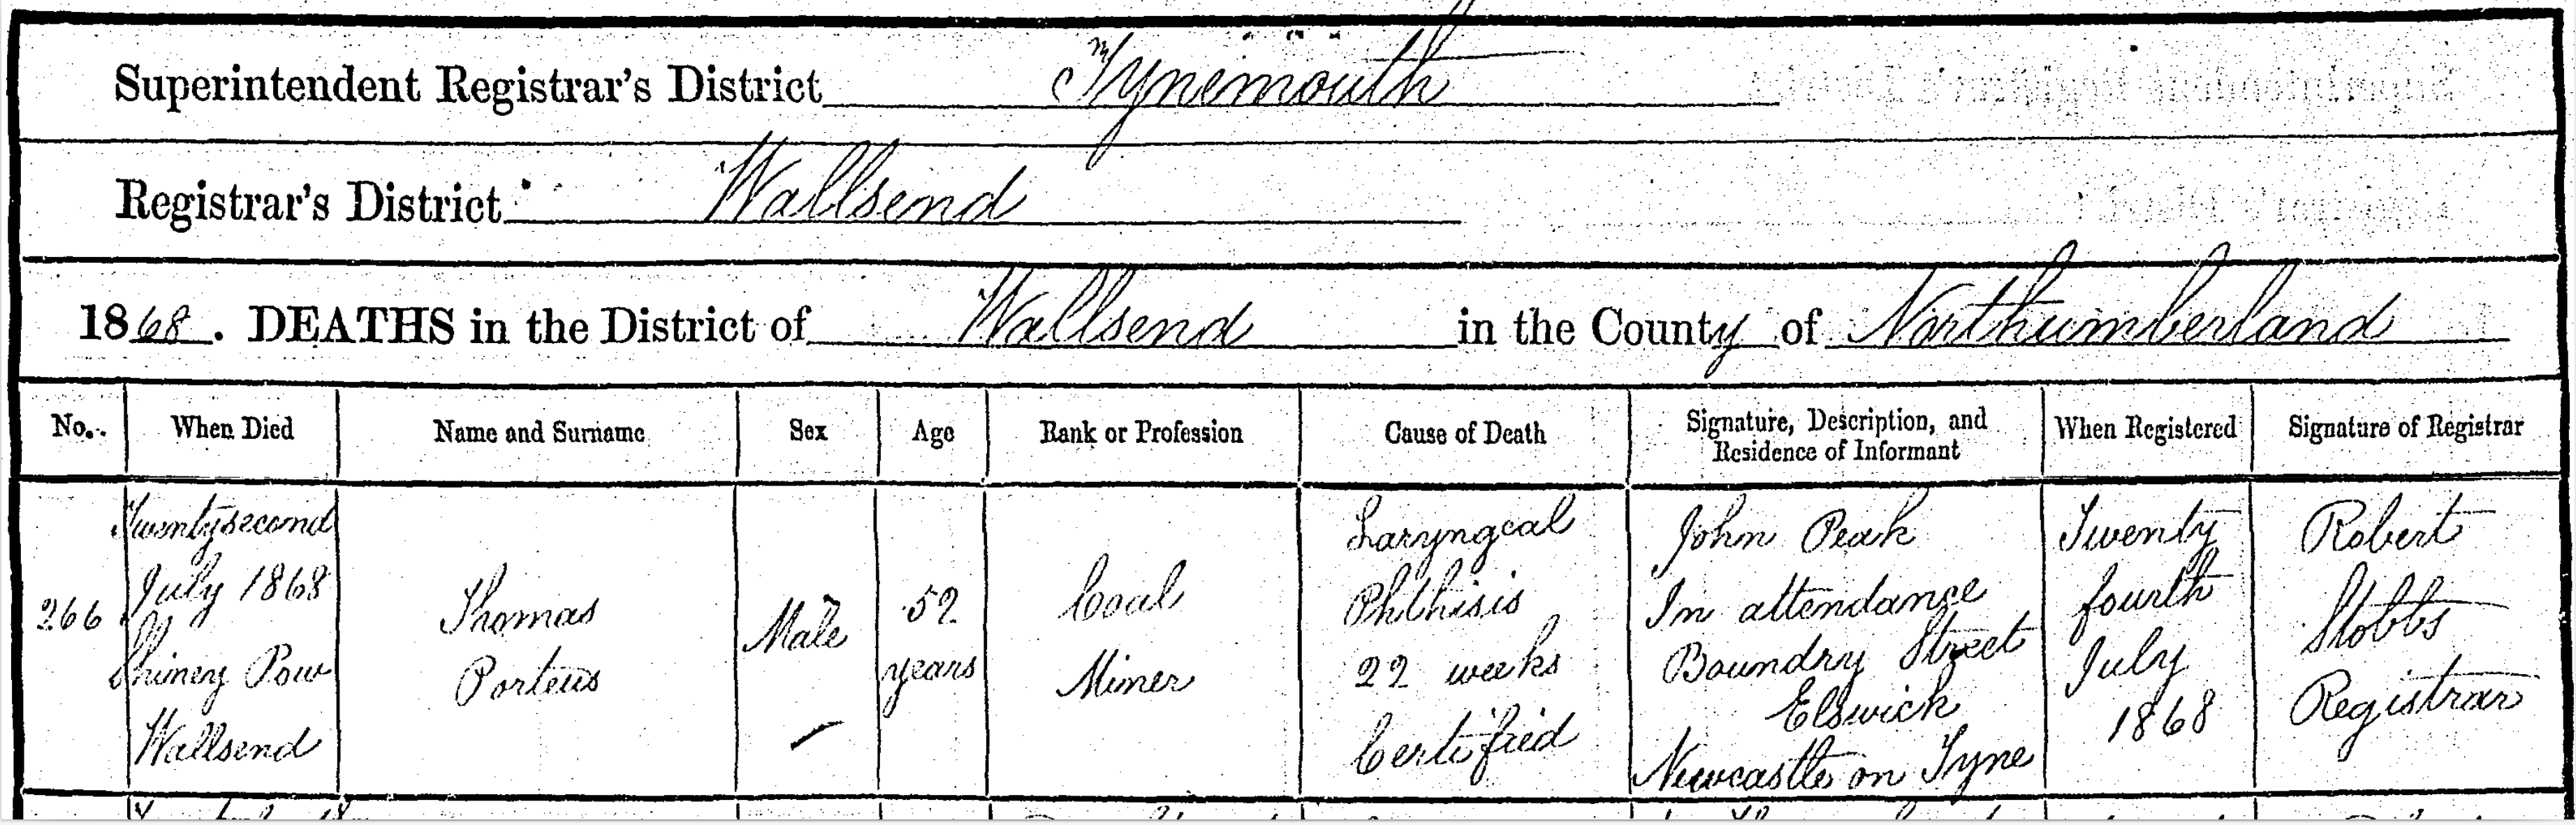 Superintendent Registrar's District Tynemouth
Registrar's District Wallsend
1868. DEATHS in the District of Wallsend in the County of Northumberland
No. When Died Name and Surname Sex Age Rank or Profession Cause of Death Signature, Description, and Residence of Informant When Registered Signature of Registrar
266
Twentysecond
July 1868
Shiney Pow
Wallsend
Thomas
Porteus
Male
52
years
Coal
Miner
Laryngeal
Phthisis
22 weeks
Certified
John Peak
In attendance
Boundry Street
Elswick
Newcastle on Tyne
Twenty
fourth
July
1868
Robert
Stobbs
Registrar